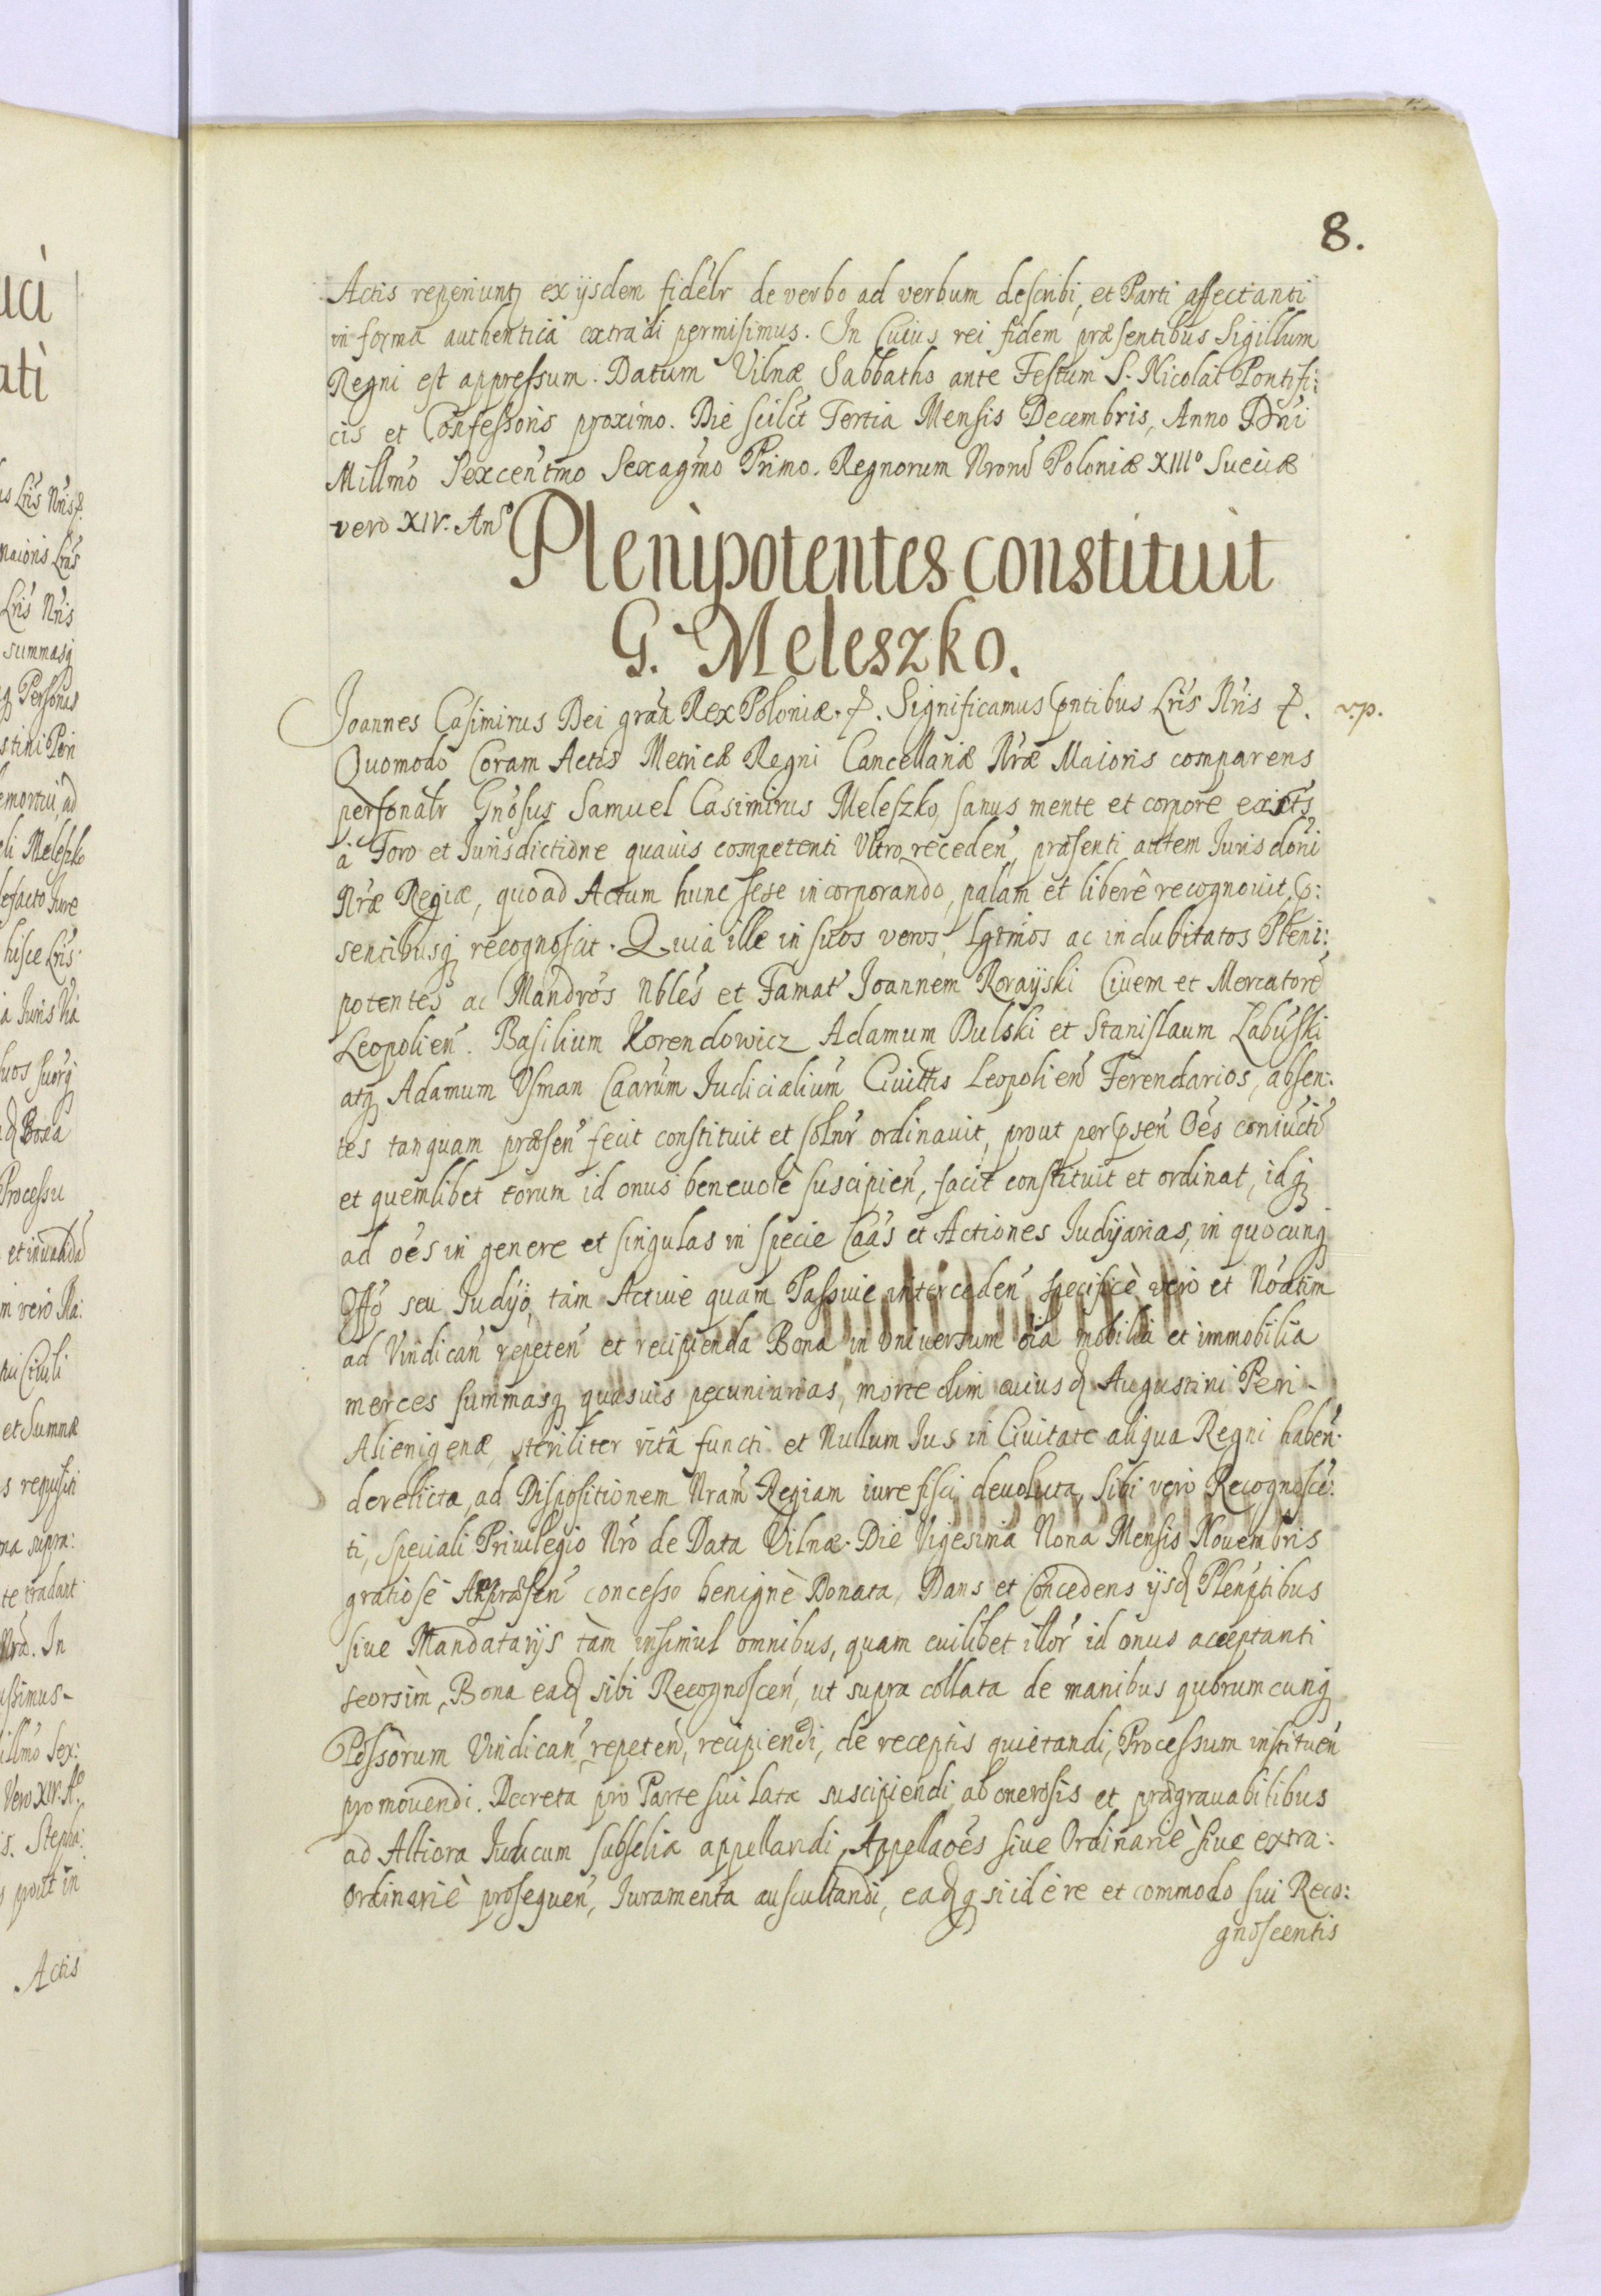 8.
Actis reperiuntꝫ ex ijsdem fidelr de verbo ad verbum describi, et Parti affectanti
in forma authentica extradi permisimus. In Cuius rei fidem præsentibus Sigillum
Regni est appressum. Datum Vilnæ Sabbatho ante Festum S. Nicolai Pontifi:
cis et Confessoris proximo. Die scilct Tertia Mensis Decembris, Anno Dni
Millmo Sexcentmo Sexagmo Primo. Regnorum Nrorũ Poloniæ XIIIo Sueciæ
vero XIV. Ano
Plenipotentes constituit
G. Meleszko.
Joannes Casimirus Dei gratia Rex Poloniæ. &. Significamus pntibus Lris Nris &. v.p.
Quomodo Coram Actis Metricæ Regni Cancellariæ Nræ Maioris comparens
personalr Gnosus Samuel Casimirus Meleszko, sanus mente et corpore existẽs,
à Foro et Jurisdictione quauis competenti Vltro receden, præsenti autem Jurisdoni
Nræ Regiæ, quoad Actum hunc sese incorporando, palam et liberè recognouit, p:
sentibusq recognoscit. Quia ille in suos veros, lgtmos ac indubitatos Pleni:
potentes ac Mandros Nbles et Famat Joannem Rorayski Ciuem et Mercatorẽ
Leopolien. Basilium Korendowicz Adamum Bulski et Stanislaum Zabuski
atq Adamum Vsman Caarum Judicialium Ciuittis Leopolien Ferendarios, absen:
tes tanquam præsen fecit constituit et solnr ordinauit, prout per psen Oes coniuctĩ
et quemlibet eorum id onus beneuolè suscipien, facit constituit et ordinat, idq
ad oes in genere et singulas in specie Caas et Actiones Judijarias, in quocunq
Offo seu Judijo, tàm Actiuè quam Passiuè interceden specificè vero et Noatim
ad Vindican repeten et recipienda Bona in vniuersum oia mobilia et immobilia
merces summasq quasuis pecuniarias, morte olim cuiusd Augustini Peri-
Alienigenæ, steriliter vitâ functi et Nullum Jus in Ciuitate aliqua Regni haben.
derelicta, ad Dispositionem Nram Regiam iure fisci deuoluta, sibi vero Recognoscẽ:
ti, speciali Priuilegio Nro de Data Vilnæ. Die Vigesima Nona Mensis Nouembris
gratiose An præsen concesso benignè Donata, Dans et Concedens ijsd Plenptibus
siue Mandatarijs tàm insimul omnibus, quam cuilibet illor id onus acceptanti
seorsim, Bona ead sibi Recognoscen, ut supra collata de manibus quorumcunq
Possorum Vindican repeten, recipiendi, de receptis quietandi, Processum instituen
promouendi. Decreta pro Parte sui lata suscipiendi ab onerosis et prægrauabilibus
ad Altiora Judicum subselia appellandi, Appellaões siue Ordinariè siue extra:
Ordinariè prosequen, Juramenta auscultandi, eadq si id è re et commodo sui Reco:
gnoscentis